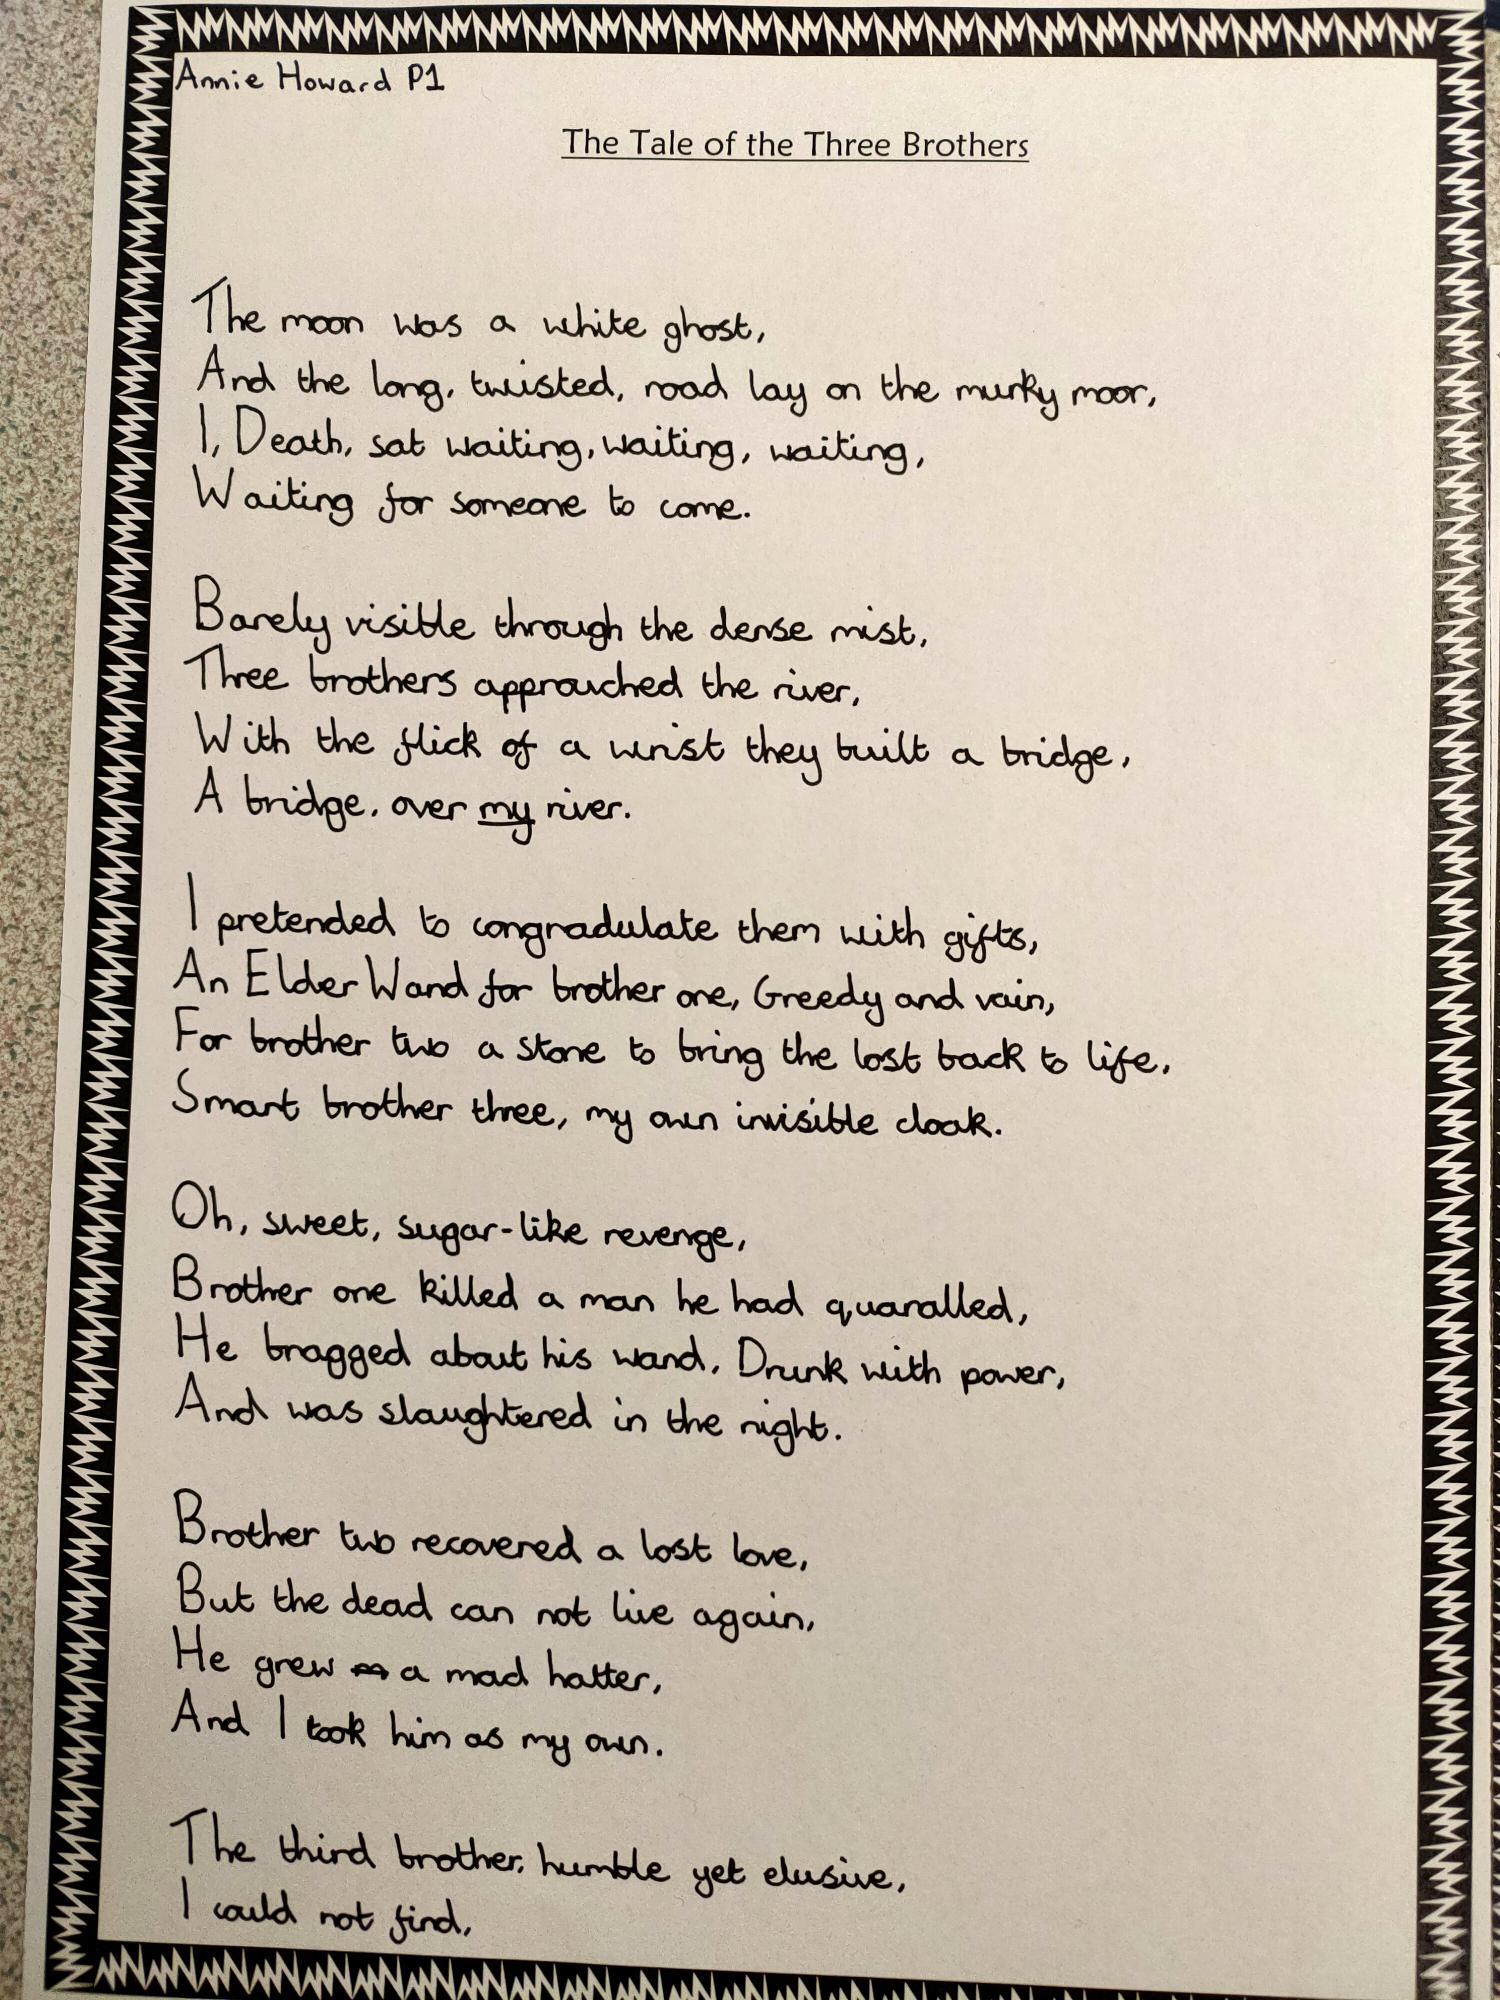 Annie Howard P1
The Tale of the Three Brothers
The moon was a white ghost,
And the long, twisted, road lay on the murky moor,
I, Death, sat waiting, waiting, waiting,
Waiting for someone to come.
Barely visible through the dense mist,
Three brothers approuched the river,
With the flick of a wrist they built a bridge,
A bridge, over my river.
I pretended to congradulate them with gifts,
An Elder Wand for brother one, Greedy and vain,
For brother two a stone to bring the lost back to life,
Smart brother three, my own invisible cloak.
Oh, sweet, sugar-like revenge,
Brother one killed a man he had quaralled,
He bragged about his wand, Drunk with power,
And was slaughtered in the night.
Brother two recovered a lost love,
But the dead can not live again,
He grew a mad hatter,
And I took him as my own.
The third brother, humble yet elusive,
I could not find,